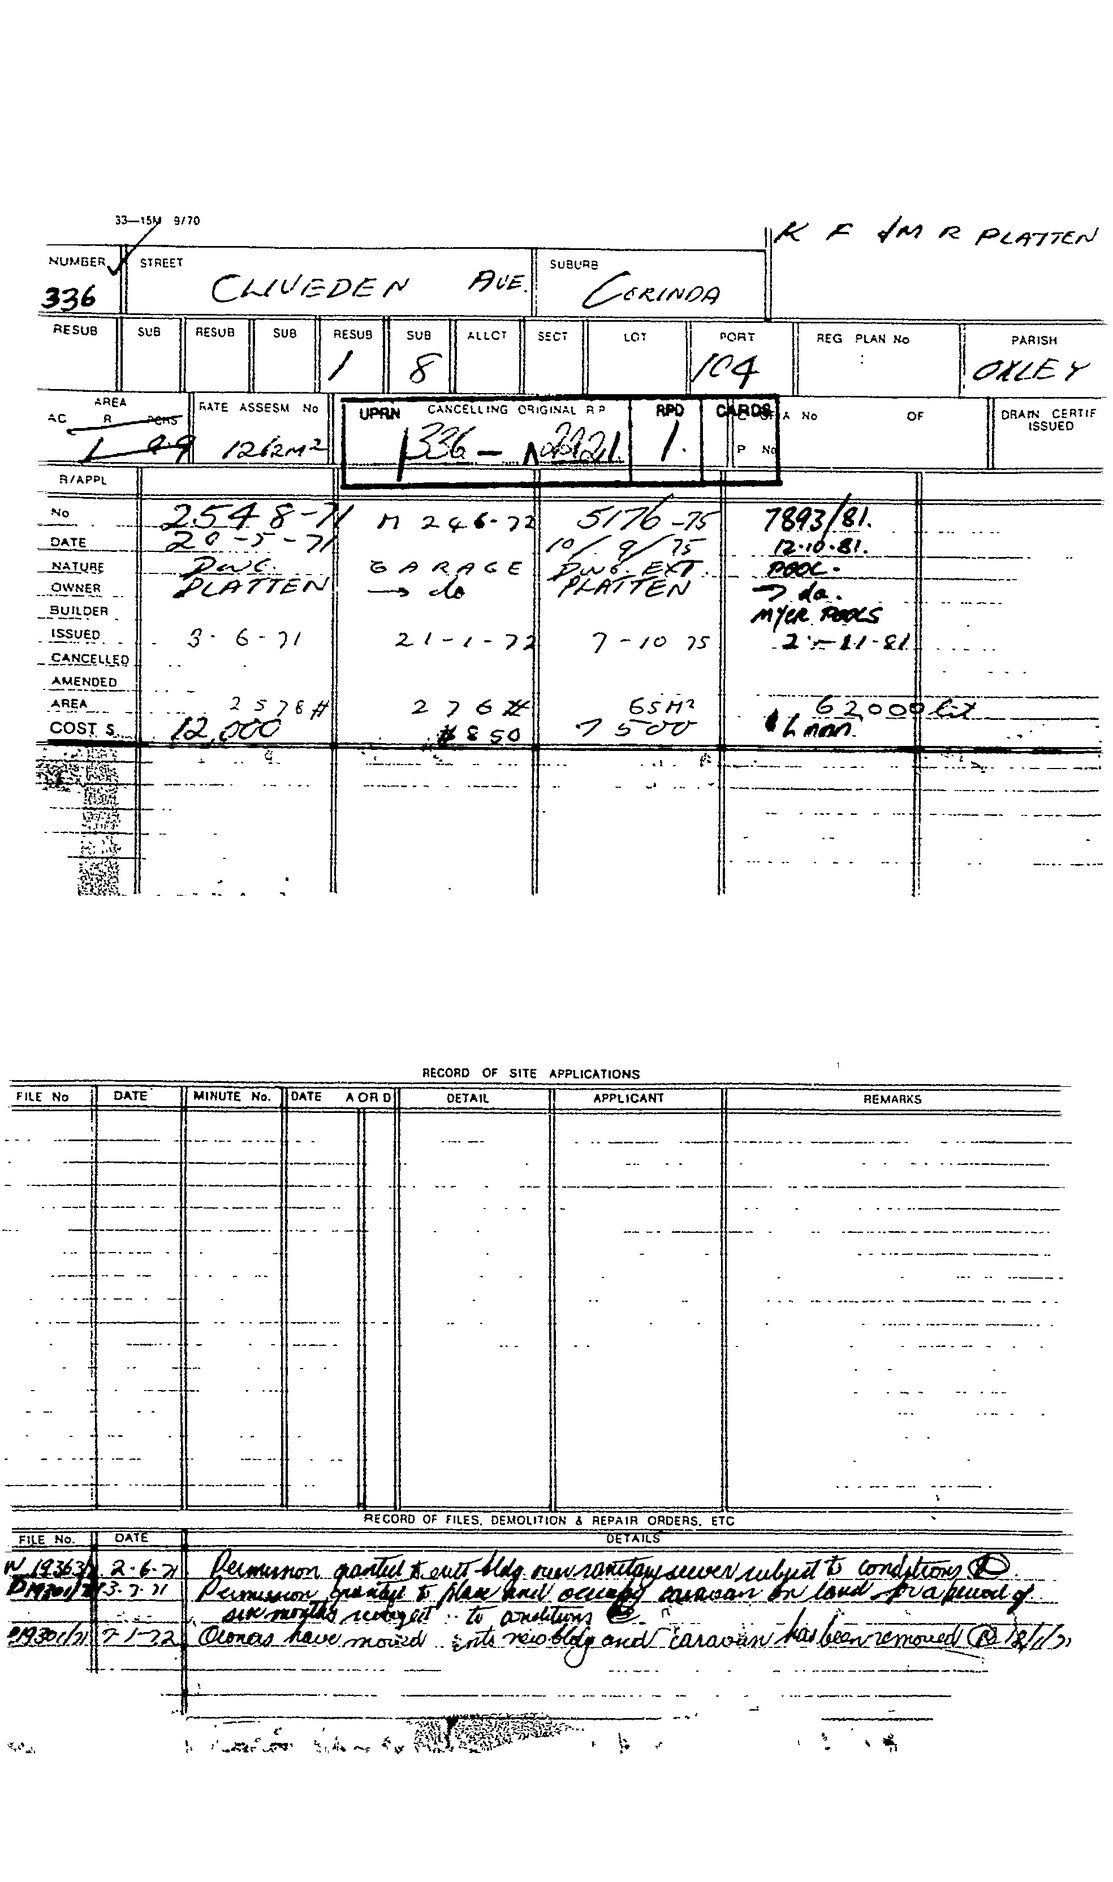 33—15M 9/70
K F & M R PLATTEN
NUMBER STREET SUBURB
336 CLIVEDEN AVE. CORINDA
RESUB SUB RESUB SUB RESUB SUB ALLCT SECT LOT PORT REG PLAN No PARISH
1 8 104 OXLEY
AREA RATE ASSESM No UPRN CANCELLING ORIGINAL R P RPD CARDS A No OF DRAIN CERTIF
AC R PCHS ISSUED
1 99 1262M² 336 — 1. P No
B/APPL
No 2548-71 M 246-72 5176-75 7893/81.
DATE 20-5-71 10/9/75 12.10.81.
NATURE DWG. GARAGE DWG. EXT POOL-
OWNER PLATTEN → do PLATTEN → do.
BUILDER MYER POOLS
ISSUED 3-6-71 21-1-72 7-10 75 -11-81
CANCELLED
AMENDED
AREA 2576 # 276 # 65M² 62000 lit
COST $ 12,000 $850 7500
RECORD OF SITE APPLICATIONS
FILE No DATE MINUTE No. DATE A OR D DETAIL APPLICANT REMARKS
RECORD OF FILES, DEMOLITION & REPAIR ORDERS, ETC
FILE No. DATE DETAILS
2-6-71 Permission granted to erect bldg over sanitary sewer subject to conditions
3-7-71 Permission granted to place and occupy caravan on land for a period of
six months subject to conditions
7-1-72 Owners have moved into new bldg and caravan has been removed